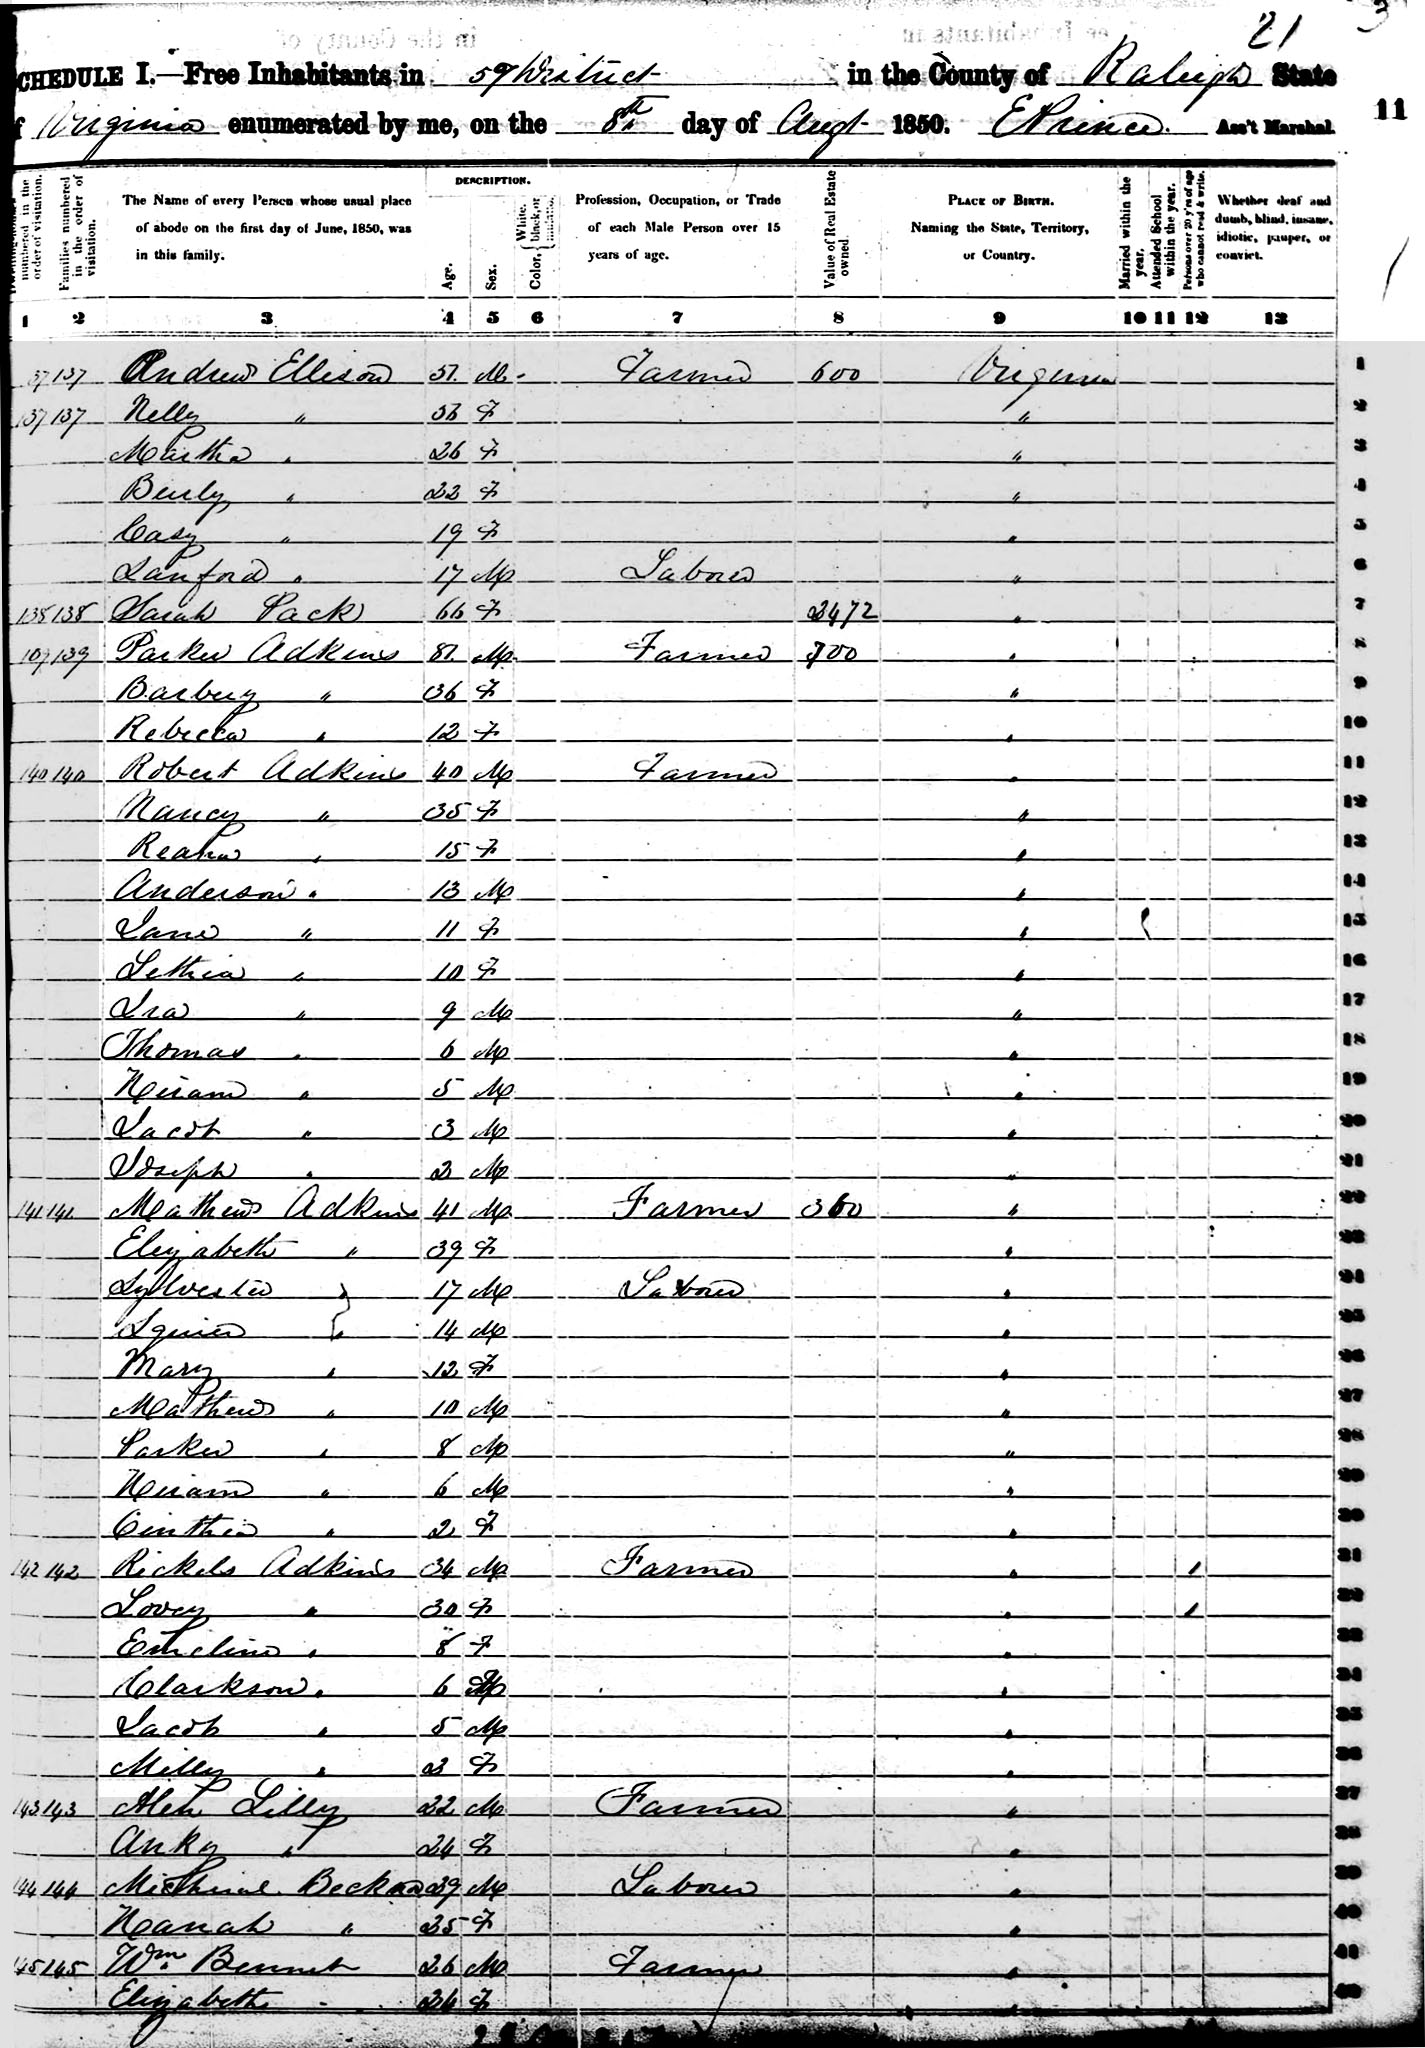 21 3
CHEDULE I.—Free Inhabitants in 59 District in the County of Raleigh State
f Virginia enumerated by me, on the 8th day of Augt 1850. E Prince. Ass't Marshal. 11
numbered in the order of visitation.
Families numbered in the order of visitation.
The Name of every Person whose usual place of abode on the first day of June, 1850, was in this family.
DESCRIPTION.
Age.
Sex.
Color, { White, black, or mulatto.
Profession, Occupation, or Trade of each Male Person over 15 years of age.
Value of Real Estate owned.
PLACE OF BIRTH. Naming the State, Territory, or Country.
Married within the year.
Attended School within the year.
Persons over 20 y'rs of age who cannot read & write.
Whether deaf and dumb, blind, insane, idiotic, pauper, or convict.
1 2 3 4 5 6 7 8 9 10 11 12 13
37 137 Andrew Ellison 57. M Farmer 600 Virginia 1
137 137 Nelly " 56 F " 2
Martha " 26 F " 3
Beuly " 22 F " 4
Casy " 19 F " 5
Sanford " 17 M Laborer " 6
138 138 Sarah Pack 66 F 2472 " 7
109 139 Parker Adkins 87. M. Farmer 700 " 8
Barbery " 36 F " 9
Rebecca " 12 F " 10
140 140 Robert Adkins 40 M Farmer " 11
Nancy " 35 F " 12
" 15 F " 13
Anderson " 13 M " 14
Jane " 11 F " 15
Lethia " 10 F " 16
Ira " 9 M " 17
Thomas " 6 M " 18
Hiram " 5 M " 19
Jacob " 3 M " 20
Joseph " 2 M " 21
141 141 Mathew Adkins 41 M Farmer 360 " 22
Elizabeth " 39 F " 23
Sylvester " 17 M Laborer " 24
Squier " 14 M " 25
Mary " 12 F " 26
Mathew " 10 M " 27
Parker " 8 M " 28
Hiram " 6 M " 29
Cinthia " 2 F " 30
142 142 Rickels Adkins 34 M Farmer " 1 31
Lovey " 30 F " 1 32
Emeline " 8 F " 33
Clarkson " 6 M " 34
Jacob " 5 M " 35
Milly " 2 F " 36
143 143 Lilly 22 M Farmer " 37
Anky " 24 F " 38
144 144 39 M Laborer " 39
Hanah " 25 F " 40
145 145 Wm Bennet 26 M Farmer " 41
Elizabeth " 26 F " 42